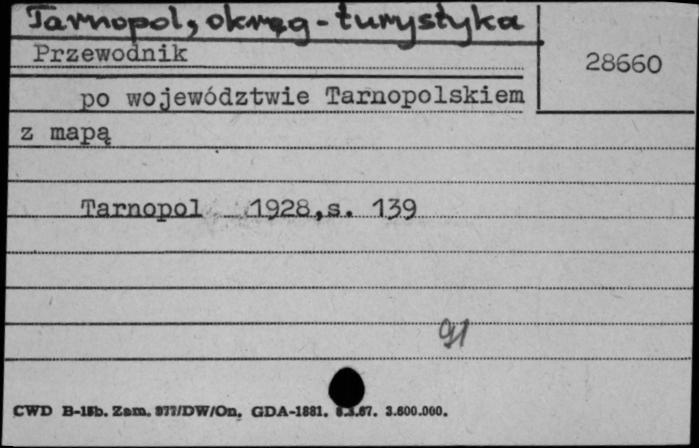 Tarnopol, okręg - turystyka
Przewodnik
28660
po województwie Tarnopolskiem
z mapą
Tarnopol 1928, s. 139
91
CWD B-15b. Zam. 977/DW/On. GDA-1881. 3.67. 3.600.000.